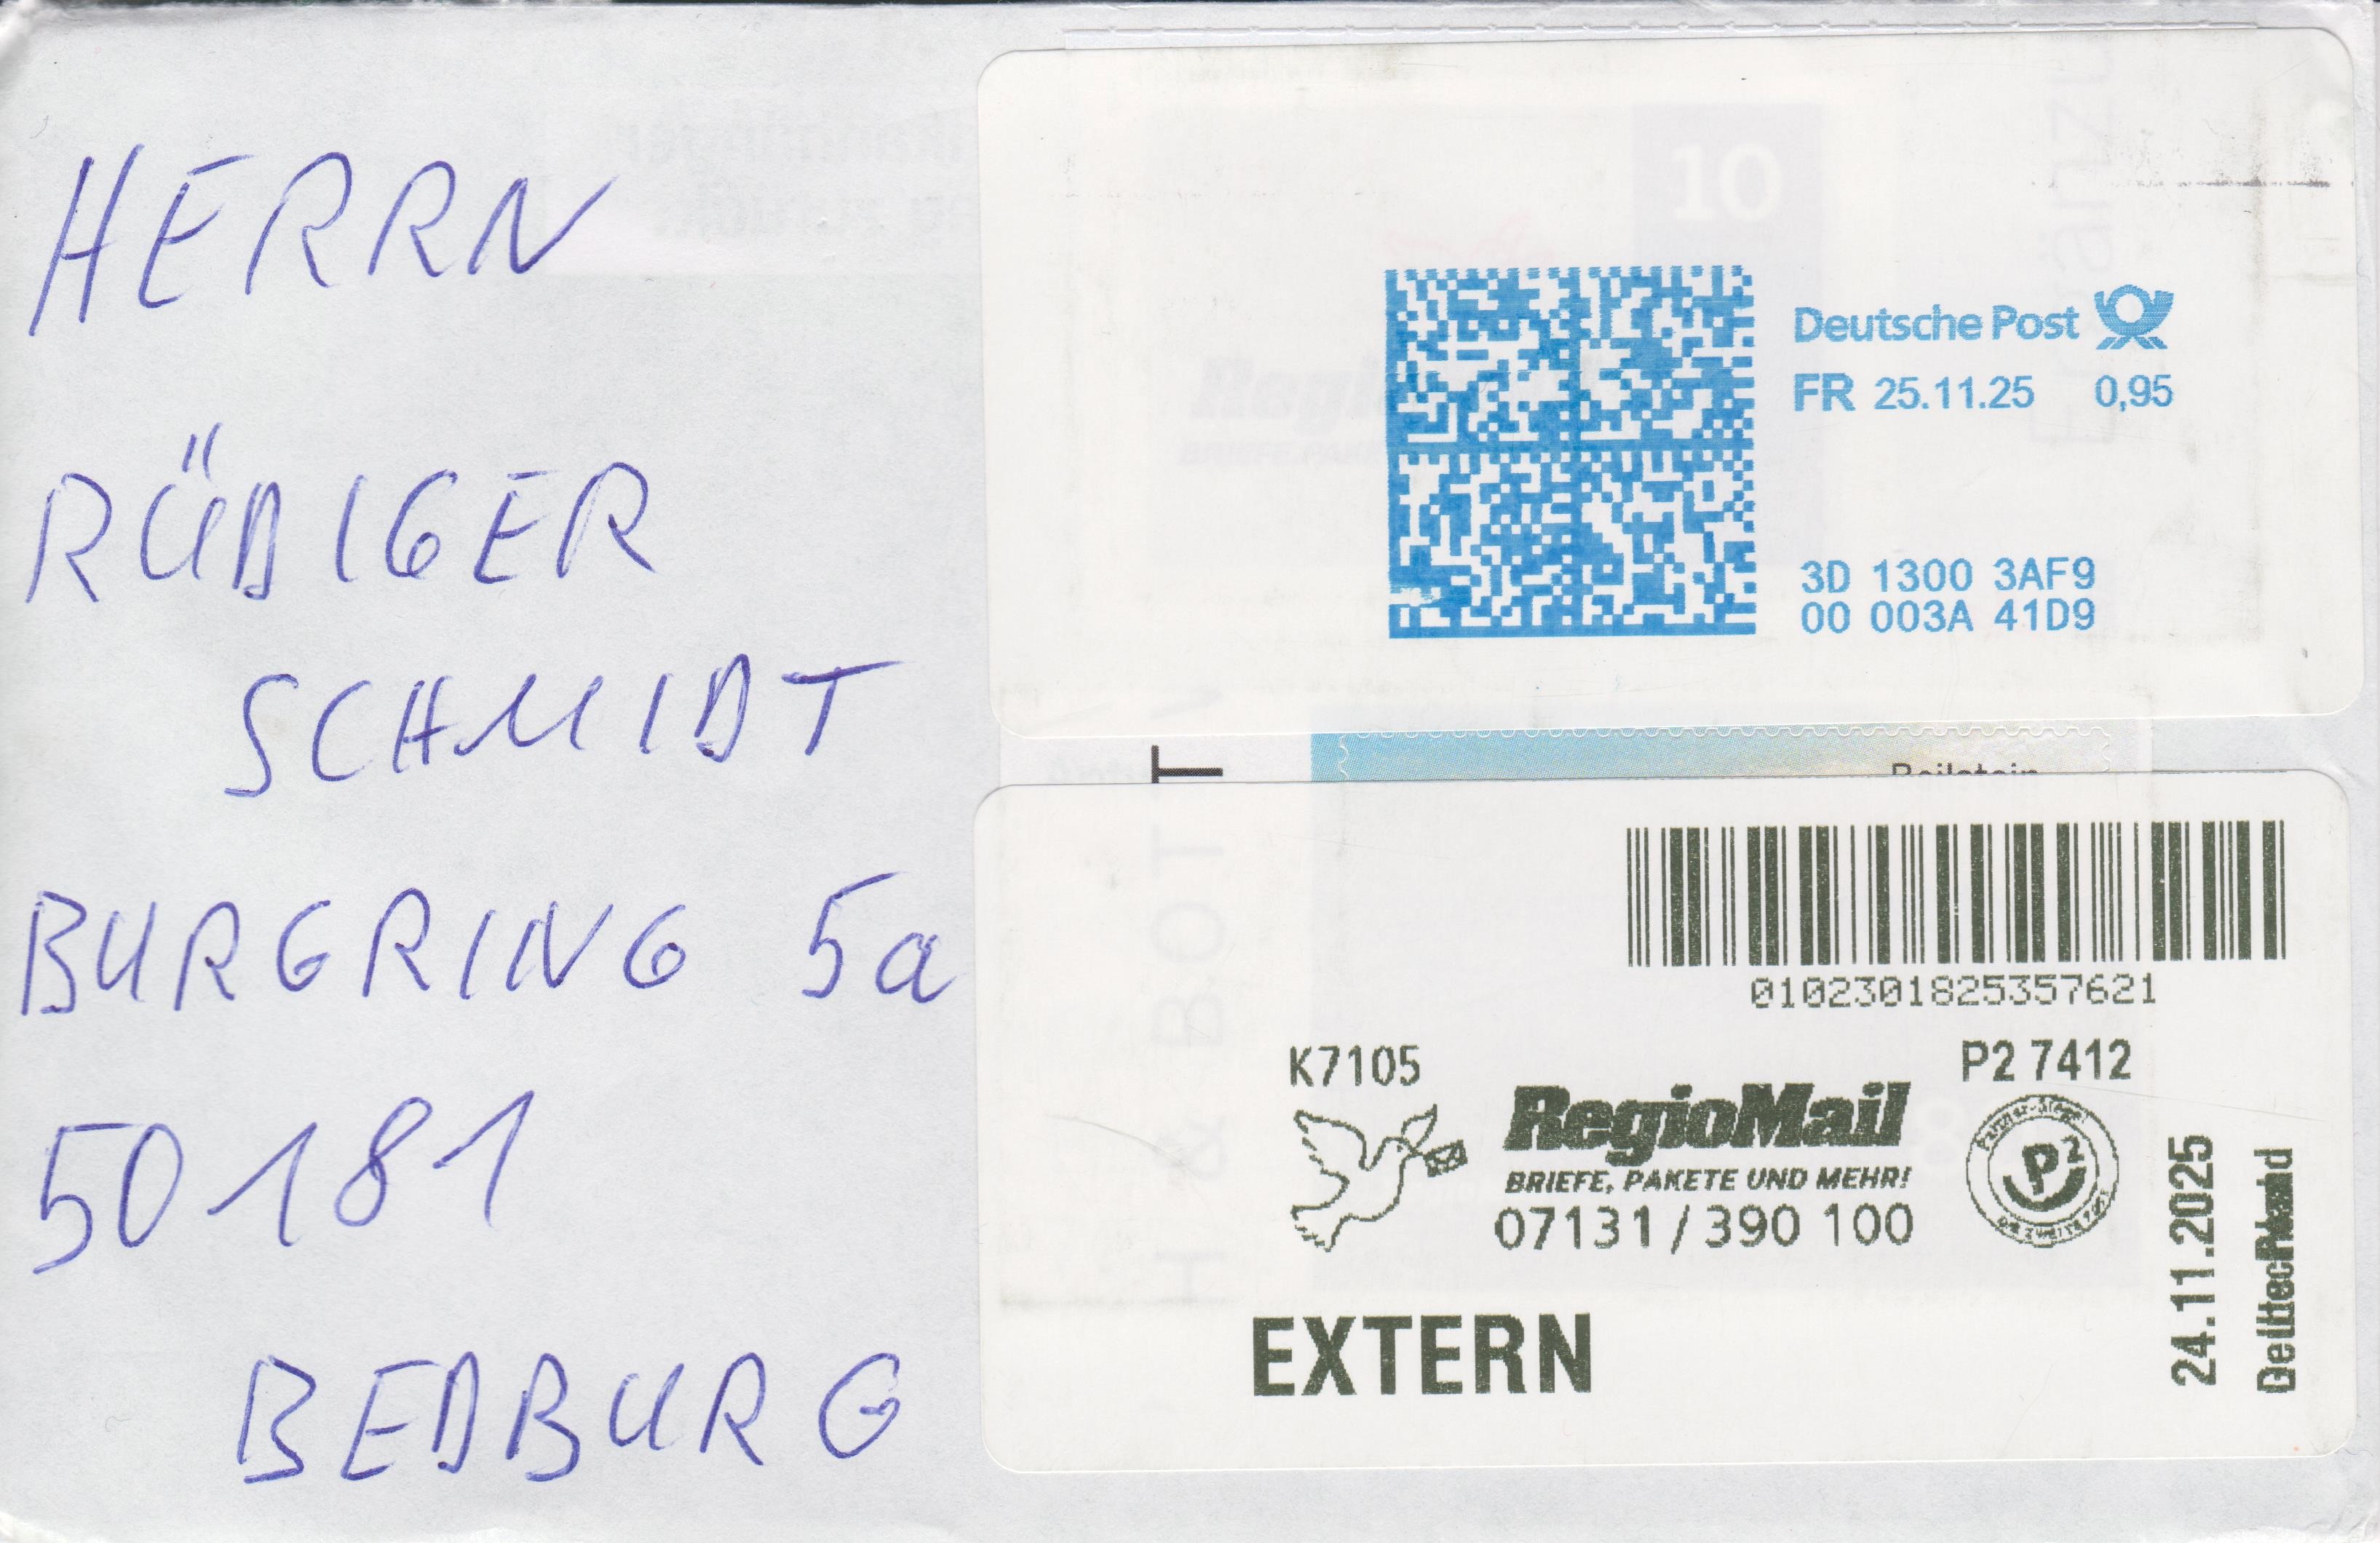 HERRN
RÜDIGER
SCHMIDT
BURGRING 5a
50181
BEDBURG
10
Deutsche Post
FR 25.11.25 0,95
3D 1300 3AF9
00 003A 41D9
Beilstein
0102301825357621
K7105
P2 7412
RegioMail
BRIEFE, PAKETE UND MEHR!
07131 / 390 100
P2
EXTERN
24.11.2025
H & BOTT